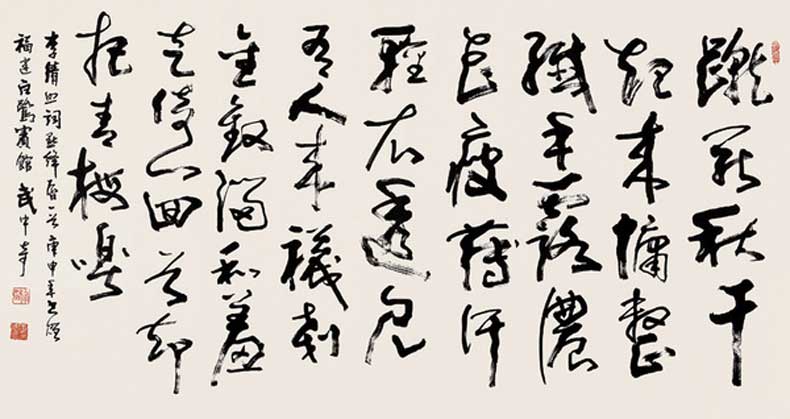 蹴罷秋千
起来慵整
纖手露濃
花瘦薄汗
輕衣透見
有人来襪刬
金釵溜和羞
走倚门回首却
把青梅嗅
李清照词點絳唇一首庚申年书於
福建白鷺賓館 武中奇